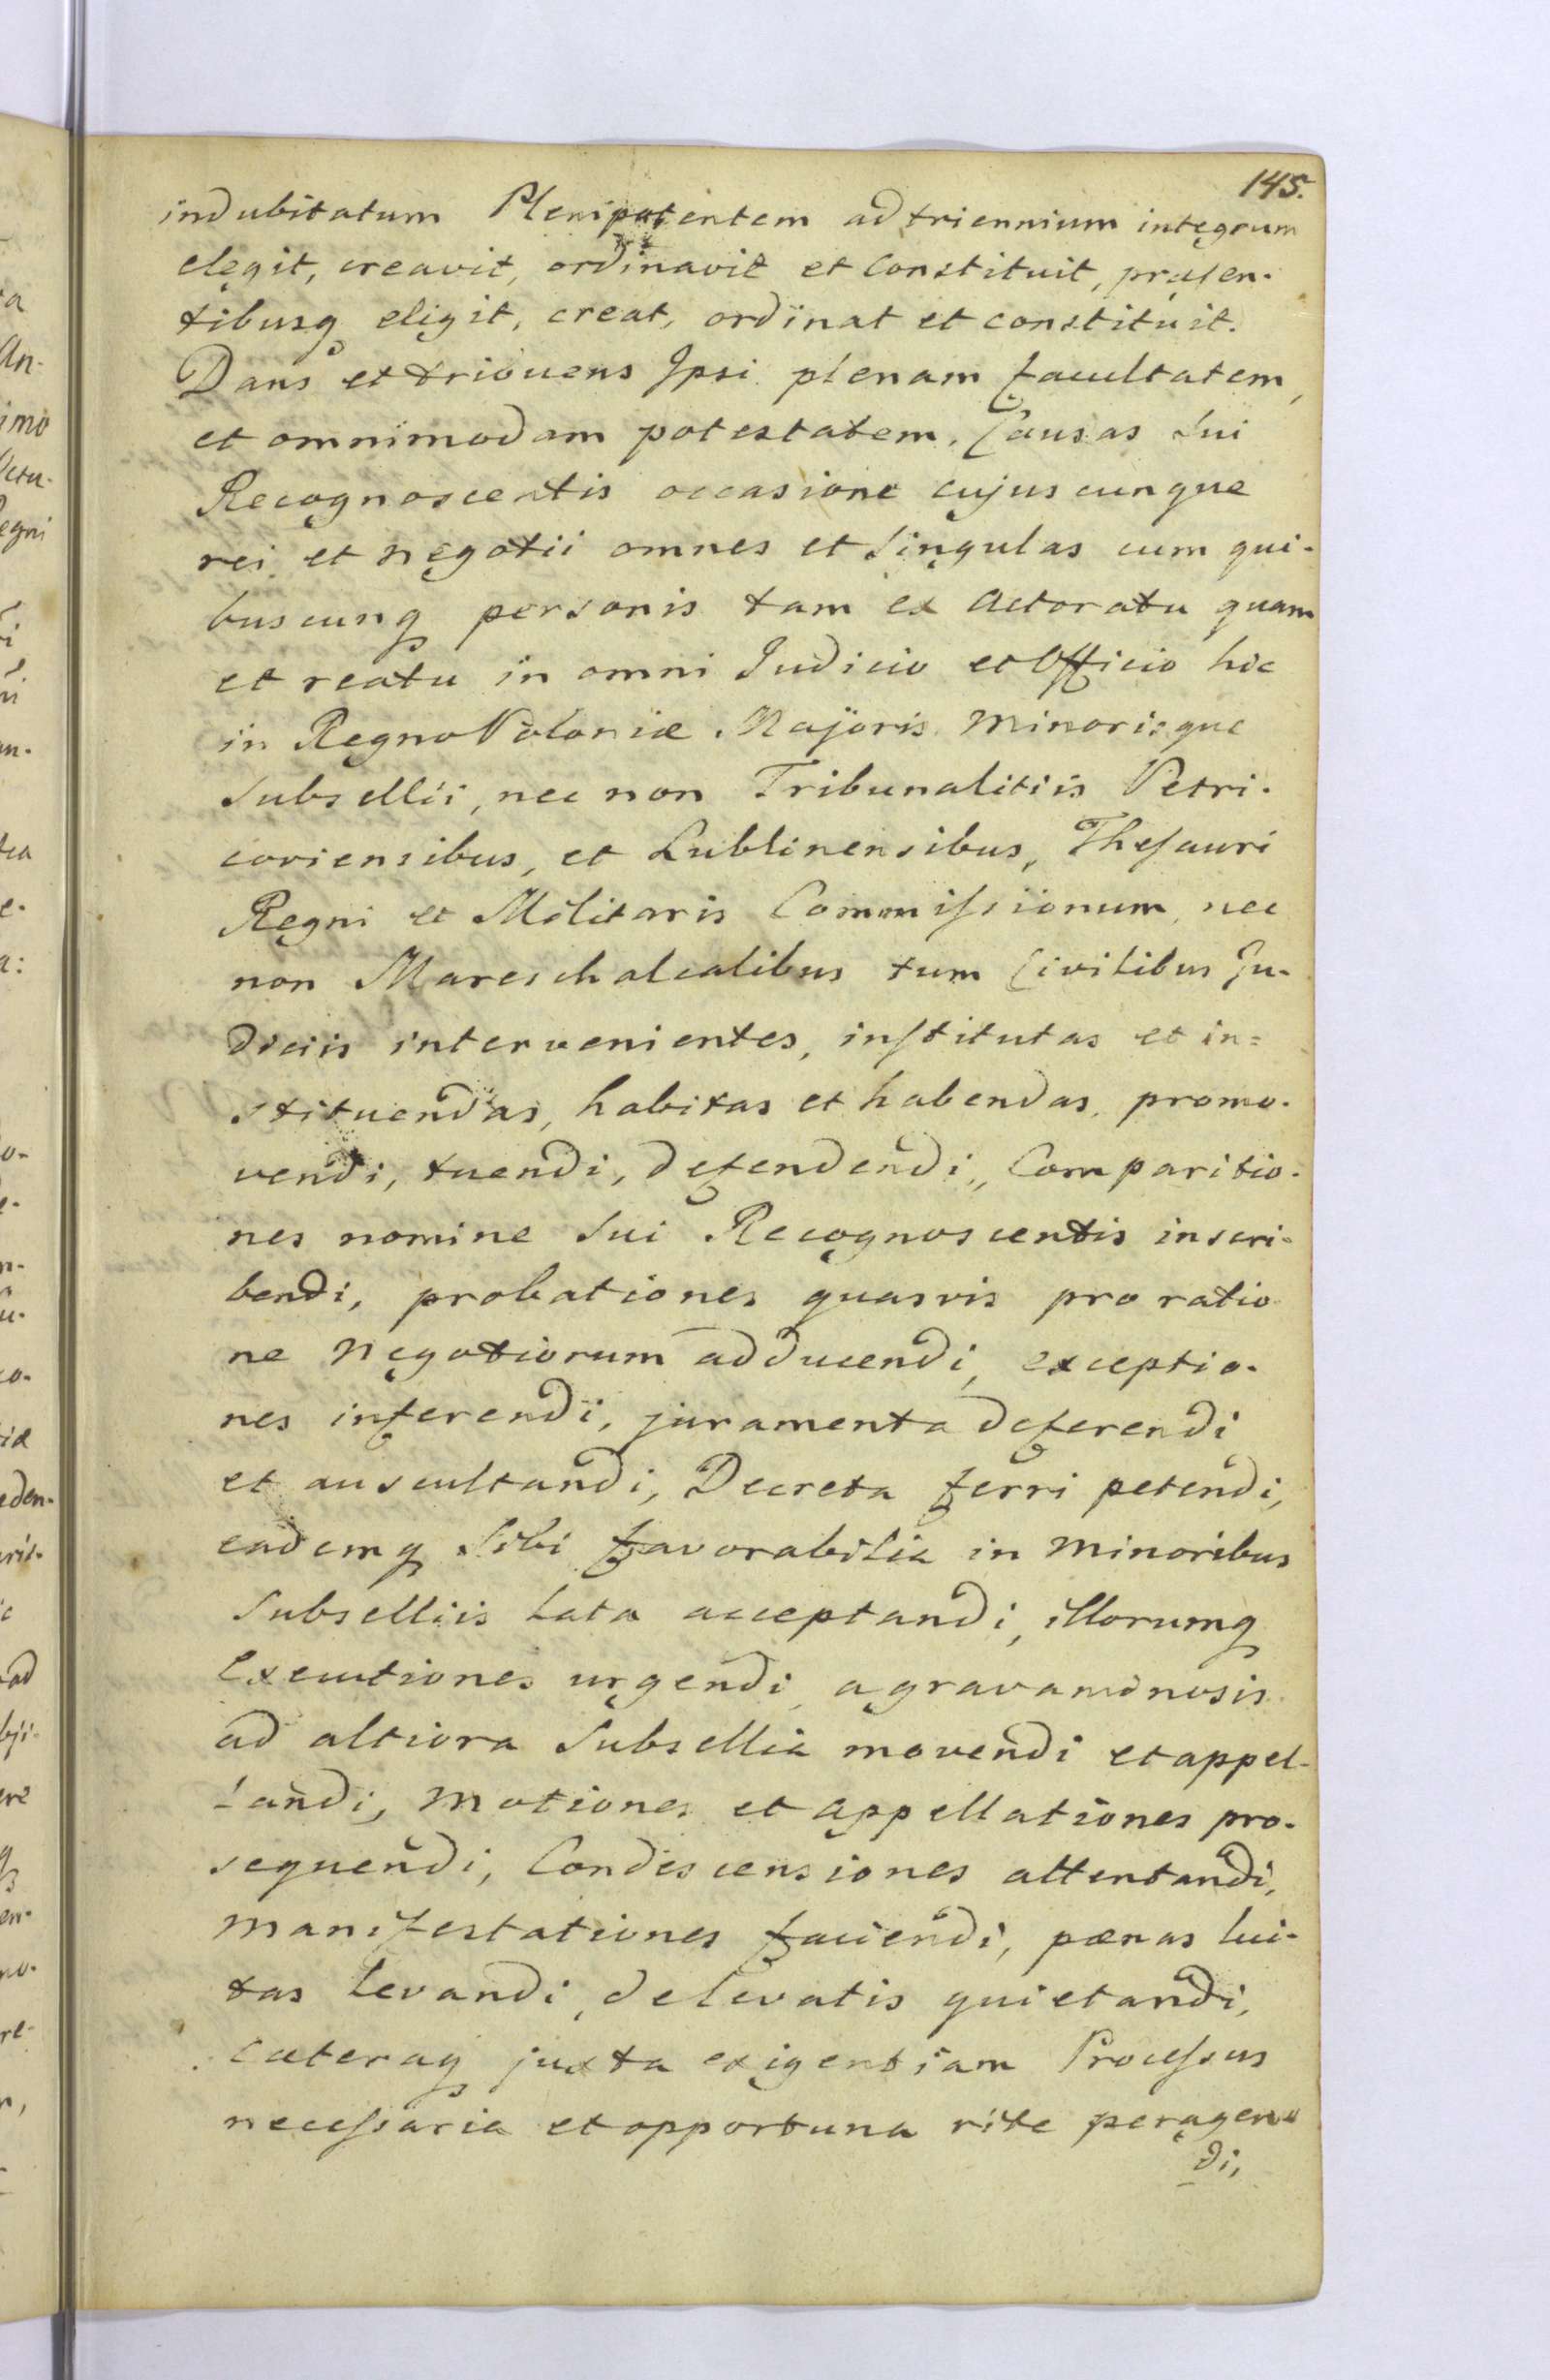 145.
indubitatum Plenipotentem ad triennium integrum
elegit, creavit, ordinavit et Constituit, præsen-
tibusq eligit, creat, ordinat et constituit.
Dans et tribuens Ipsi plenam facultatem,
et omnimodam potestatem, Causas sui
Recognoscentis occasione cujuscunque
rei et negotii omnes et singulas cum qui-
buscunq personis tam ex Actoratu quam
et reatu in omni Judicio et Officio hic
in Regno Poloniæ Majoris Minorisque
Subsellii, nec non Tribunalitiis Petri-
coviensibus, et Lublinensibus, Thesauri
Regni et Militaris Commissionum, nec
non Mareschalcalibus tum Civilibus Ju-
diciis intervenientes, institutas et in=
stituendas, habitas et habendas, promo-
vendi, tuendi, defendendi, Comparitio-
nes nomine sui Recognoscentis inscri-
bendi, probationes quasvis pro ratio
ne negotiorum adducendi, exceptio-
nes inferendi, juramenta deferendi
et auscultandi, Decreta ferri petendi,
eademq sibi favorabilia in minoribus
Subselliis lata acceptandi, illorumq
Executiones urgendi, agravaminosis
ad altiora Subsellia movendi et appel-
landi, motiones et appellationes pro-
sequendi, Condescensiones attentandi,
manifestationes faciendi, pænas lui-
tas levandi, de levatis quietandi,
cæteraq juxta exigentiam Processus
necessaria et opportuna rite peragen-
di,